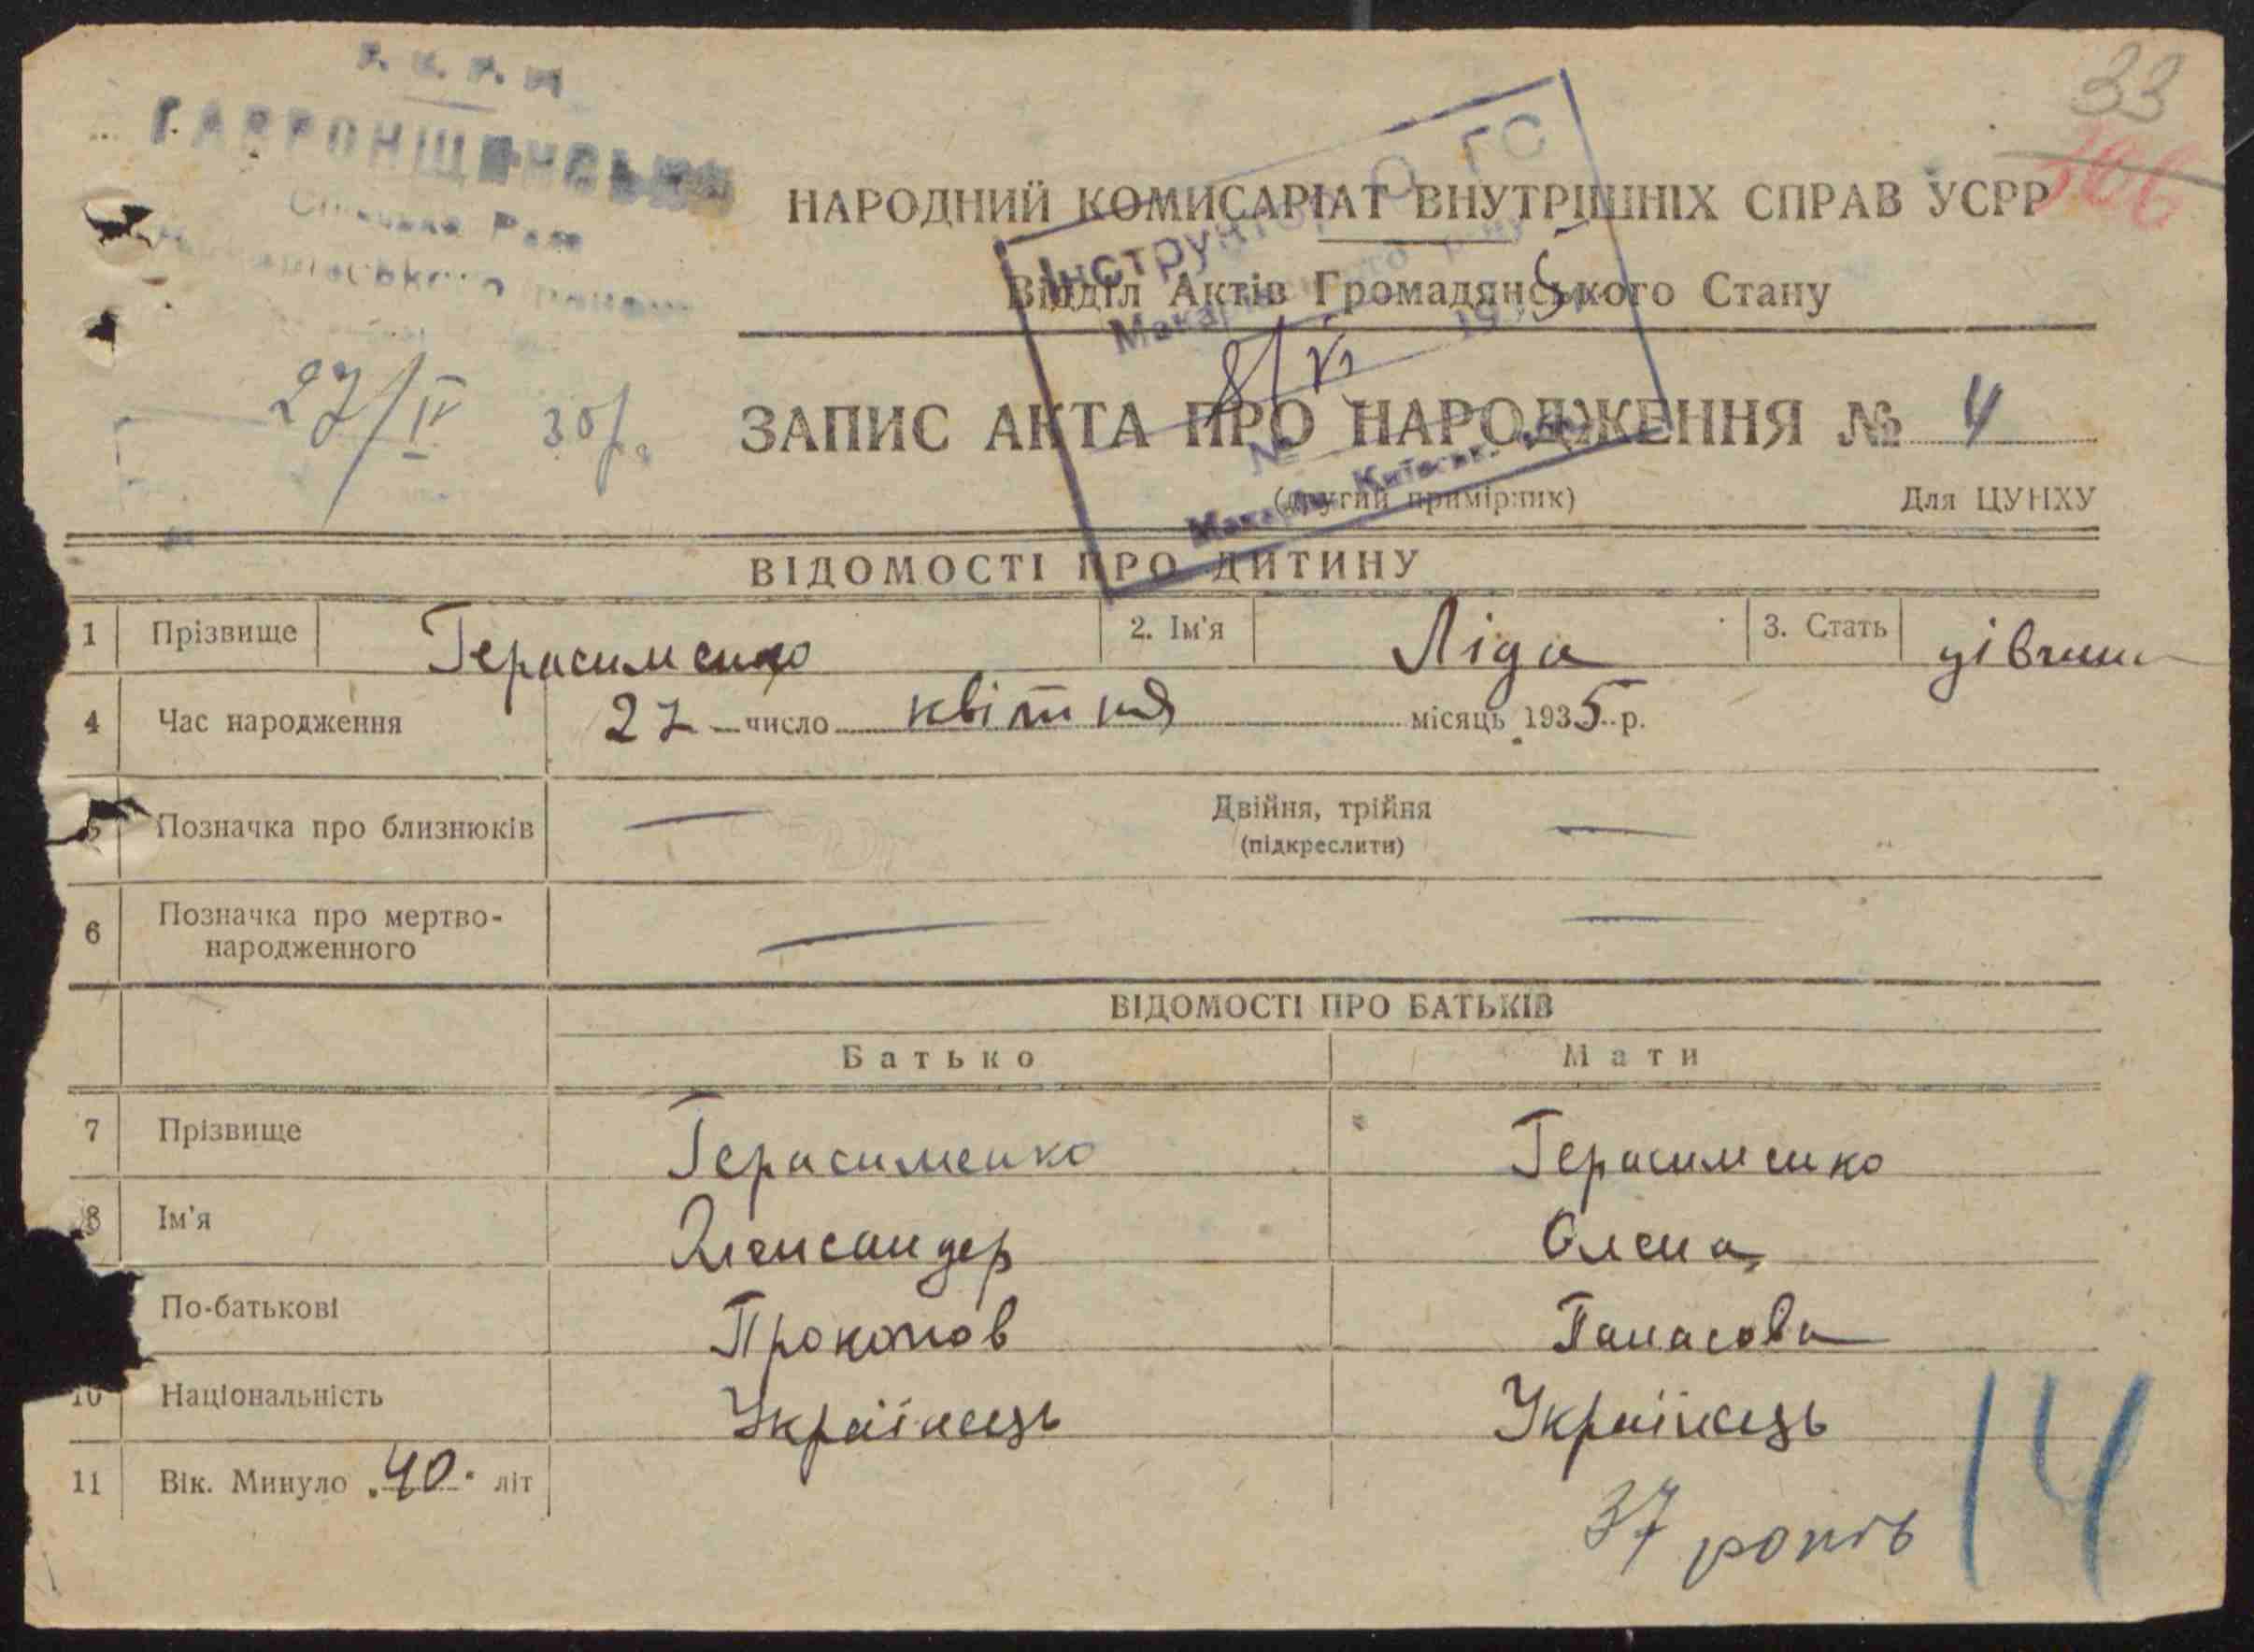 33
ГАВРОНЩИНСЬКА
Сільська Рада
району
НАРОДНИЙ КОМИСАРІАТ ВНУТРІШНІХ СПРАВ УСРР
Відділ Актів Громадянського Стану
Інструктор О ГС
8/VI
27/IV
ЗАПИС АКТА ПРО НАРОДЖЕННЯ № 4
№
(другий примірник) Для ЦУНХУ
ВІДОМОСТІ ПРО ДИТИНУ
1 Прізвище Герасименко 2. Ім'я Ліда 3. Стать дівчина
4 Час народження 27 число квітня місяць 1935 р.
5 Позначка про близнюків — Двійня, трійня —
(підкреслити)
6 Позначка про мертво-
народженного — —
ВІДОМОСТІ ПРО БАТЬКІВ
Батько Мати
7 Прізвище Герасименко Герасименко
8 Ім'я Олександер Олена
По-батькові Прокопов Панасова
10 Національність Українець Українець
11 Вік. Минуло 40 літ
37 років
14